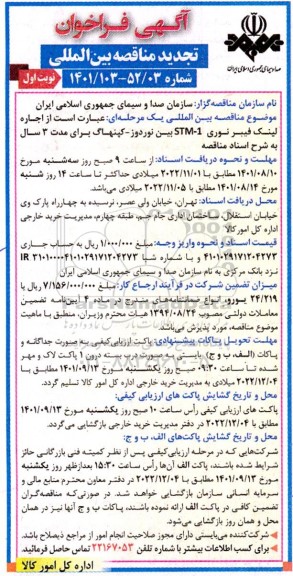 آگهی فراخوان
تجدید مناقصه بین المللی
شماره ۱۴۰۱/۱۰۳-۵۲/۰۳
نوبت اول
صدا و سیمای جمهوری اسلامی ایران
نام سازمان مناقصه‌گزار: سازمان صدا و سیمای جمهوری اسلامی ایران
موضوع مناقصه بین المللی یک مرحله‌ای: عبارت است از اجاره
لینک فیبر نوری STM-1 بین نوردوز-کپنهاگ برای مدت ۳ سال
به شرح اسناد مناقصه
مهلت و نحوه دریافت اسناد: از ساعت ۹ صبح روز سه‌شنبه مورخ
۱۴۰۱/۰۸/۱۰ مطابق با ۲۰۲۲/۱۱/۰۱ میلادی حداکثر تا ساعت ۱۴ روز شنبه
مورخ ۱۴۰۱/۰۸/۱۴ مطابق با ۲۰۲۲/۱۱/۰۵ میلادی می‌باشد.
محل دریافت اسناد: تهران، خیابان ولی عصر، نرسیده به چهارراه پارک وی
خیابان استقلال، ساختمان اداری جام جم، طبقه چهارم، مدیریت خرید خارجی
اداره کل امور کالا
قیمت اسناد و نحوه واریز وجه: مبلغ ۱/۰۰۰/۰۰۰ ریال به حساب جاری
۴۱۰۱۰۲۹۱۷۱۲۰۴۲۷۳ و با شماره شبا IR ۳۱۰۱۰۰۰۰۴۱۰۱۰۲۹۱۷۱۲۰۴۲۷۳
نزد بانک مرکزی به نام سازمان صدا و سیمای جمهوری اسلامی ایران
میزان تضمین شرکت در فرآیند ارجاع کار: مبلغ ۷/۱۵۶/۰۰۰/۰۰۰ ریال یا
۲۴/۲۱۹ یورو، انواع ضمانت‌نامه‌های مندرج در ماده ۴ آیین‌نامه تضمین
معاملات دولتی مصوب ۱۳۹۴/۰۸/۲۴ هیات محترم وزیران، منطبق با ماهیت
موضوع مناقصه، مورد پذیرش می‌باشد.
مهلت تحویل پاکات پیشنهادی: پاکت ارزیابی کیفی به صورت جداگانه و
پاکات (الف، ب و ج)، بایستی به‌صورت دربسته درون ۱ پاکت لاک و مهر
شده تا ساعت ۰۹:۳۰ صبح روز یکشنبه مورخ ۱۴۰۱/۰۹/۱۳ مطابق با
۲۰۲۲/۱۲/۰۴ میلادی به مدیریت خرید خارجی اداره کل امور کالا تسلیم گردد.
محل و تاریخ گشایش پاکت‌های ارزیابی کیفی:
پاکت های ارزیابی کیفی رأس ساعت ۱۰ صبح روز یکشنبه مورخ ۱۴۰۱/۰۹/۱۳
مطابق با ۲۰۲۲/۱۲/۰۴ در دفتر مدیریت خرید خارجی بازگشایی می‌گردد.
محل و تاریخ گشایش پاکت‌های الف، ب و ج:
شرکت‌هایی که در مرحله ارزیابی کیفی، پس از نظر کمیته فنی بازرگانی حائز
شرایط شده باشند، پاکت الف آن‌ها رأس ساعت ۱۵:۳۰ بعدازظهر روز یکشنبه
مورخ ۱۴۰۱/۰۹/۱۳ مطابق با ۲۰۲۲/۱۲/۰۴ در دفتر معاون محترم منابع مالی و
سرمایه انسانی سازمان بازگشایی خواهد شد. در صورتی‌که مناقصه‌گران
تضمین کافی در پاکت الف ارائه نموده باشند، پاکات ب و ج آنها نیز در همان
محل و همان روز بازگشایی می‌شود.
شرکت‌کننده می‌بایستی دارای مجوز صلاحیت انجام امور از مراجع ذیصلاح باشد.
برای کسب اطلاعات بیشتر با شماره تلفن ۲۲۱۶۷۰۵۳ تماس حاصل فرمائید.
اداره کل امور کالا